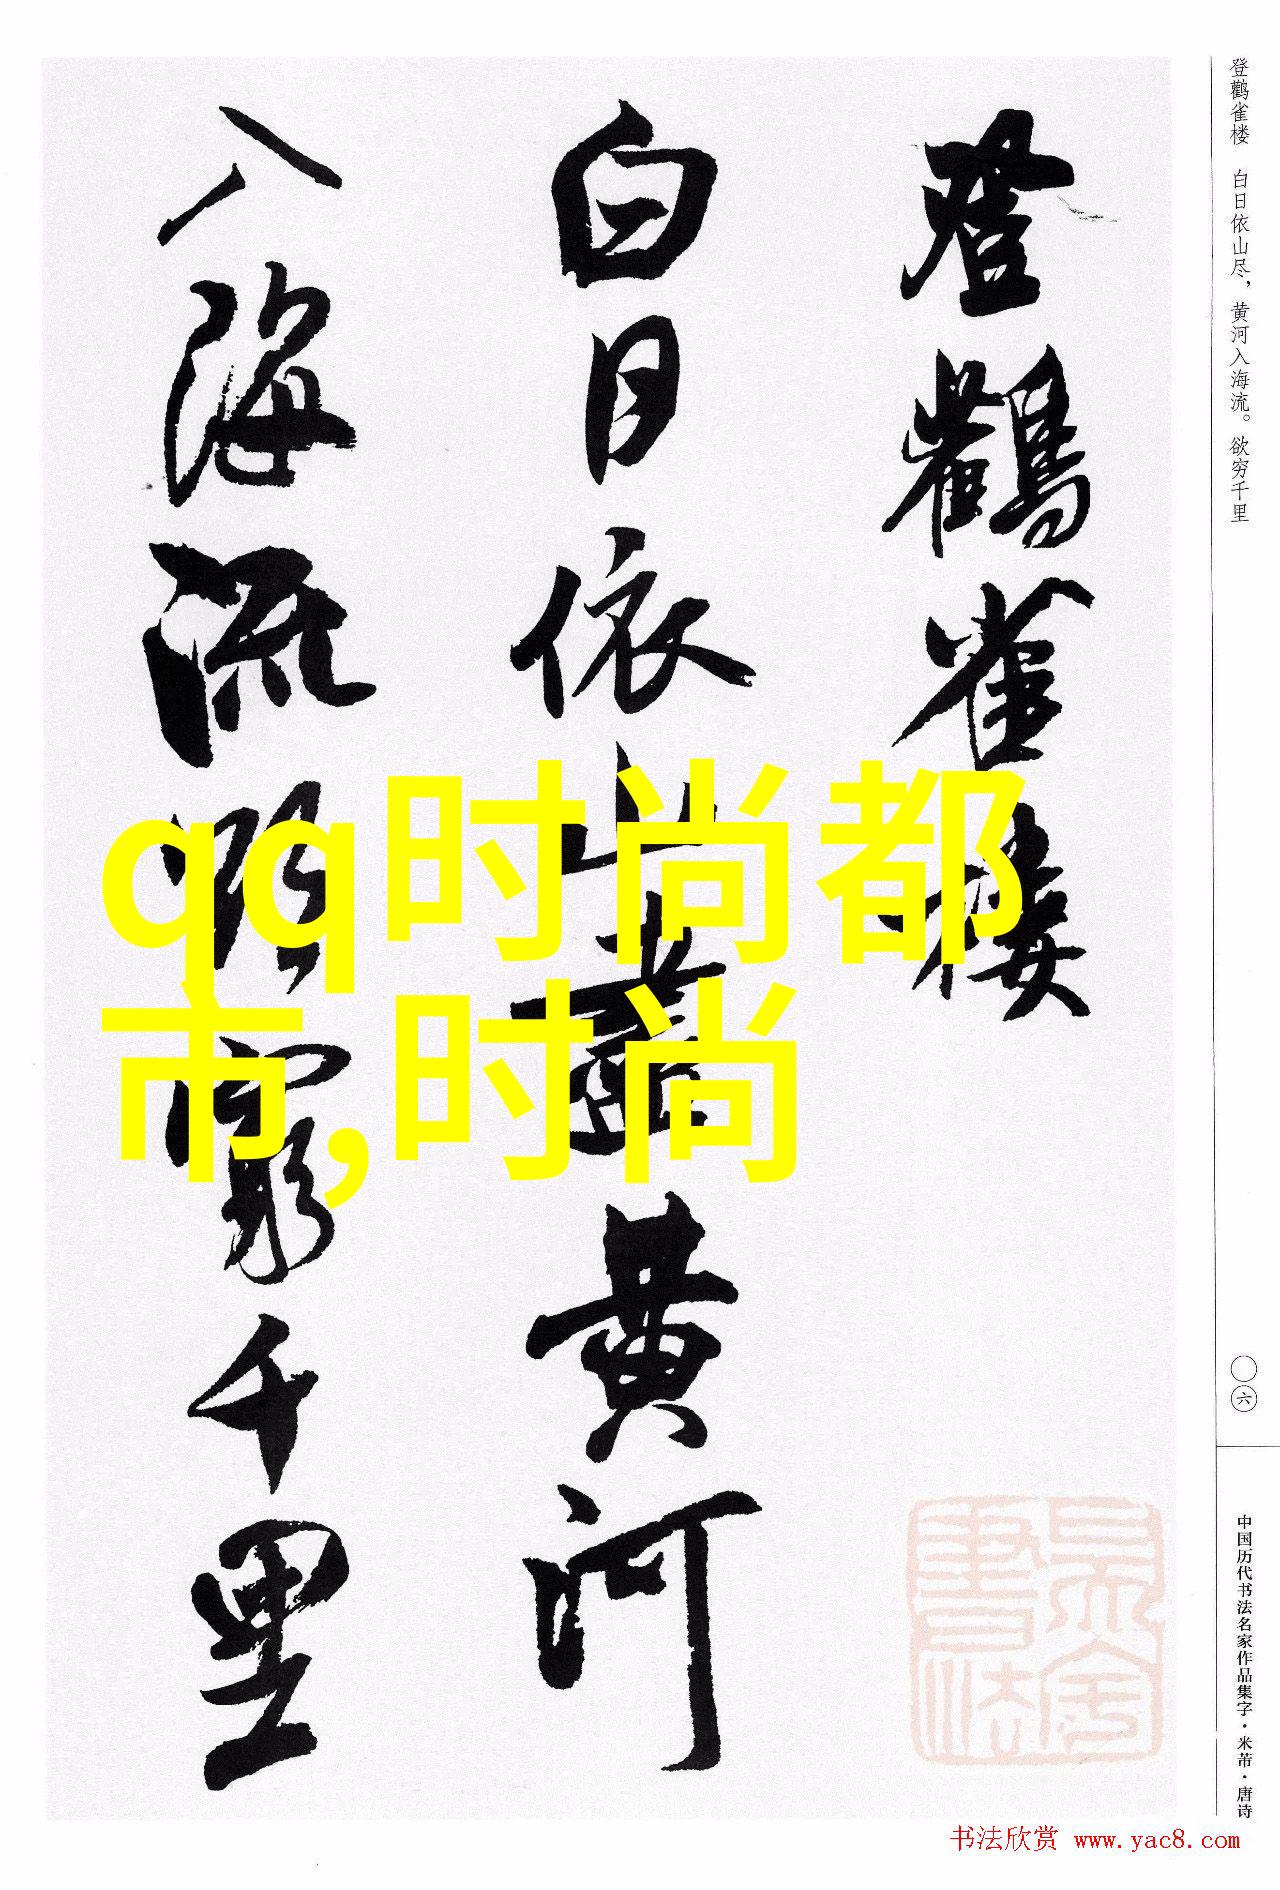 登鸛雀樓
白日依山盡黃河
入海流欲窮千里
qq时尚都
市,时尚
登鹳雀楼 白日依山尽，黄河入海流。欲穷千里
〇六
中国历代书法名家作品集字·米芾·唐诗
书法欣赏 www.yac8.com